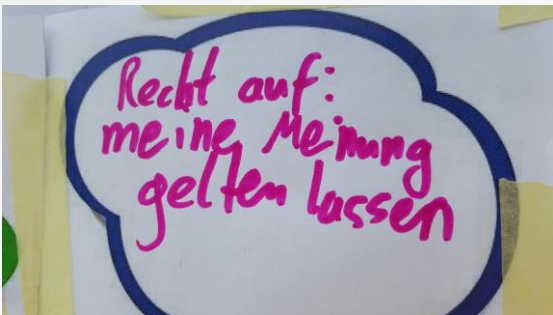 Recht auf:
meine Meinung
gelten lassen